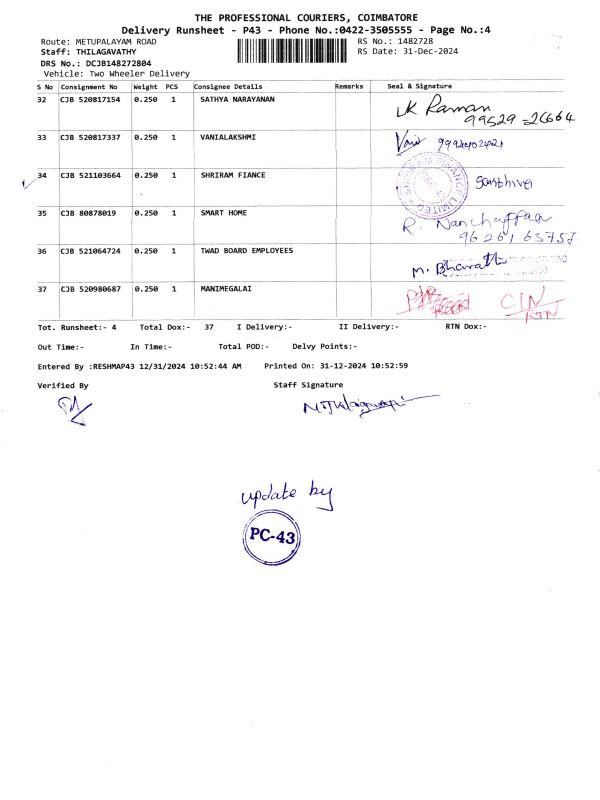 THE PROFESSIONAL COURIERS, COIMBATORE
Delivery Runsheet - P43 - Phone No.:0422-3505555 - Page No.:4
Route: METUPALAYAM ROAD RS No.: 1482728
Staff: THILAGAVATHY RS Date: 31-Dec-2024
DRS No.: DCJB148272804
Vehicle: Two Wheeler Delivery
S No Consignment No Weight PCS Consignee Details Remarks Seal & Signature
32 CJB 520817154 0.250 1 SATHYA NARAYANAN K Raman
99529-26664
33 CJB 520817337 0.250 1 VANIALAKSHMI Vani
34 CJB 521103664 0.250 1 SHRIRAM FIANCE SHRIRAM FINANCE LIMITED
35 CJB 80878019 0.250 1 SMART HOME R.
96261 63757
36 CJB 521064724 0.250 1 TWAD BOARD EMPLOYEES M. Bharathi
37 CJB 520980687 0.250 1 MANIMEGALAI CIN
RTN
Tot. Runsheet:- 4 Total Dox:- 37 I Delivery:- II Delivery:- RTN Dox:-
Out Time:- In Time:- Total POD:- Delvy Points:-
Entered By :RESHMAP43 12/31/2024 10:52:44 AM Printed On: 31-12-2024 10:52:59
Verified By Staff Signature
update by
PC-43